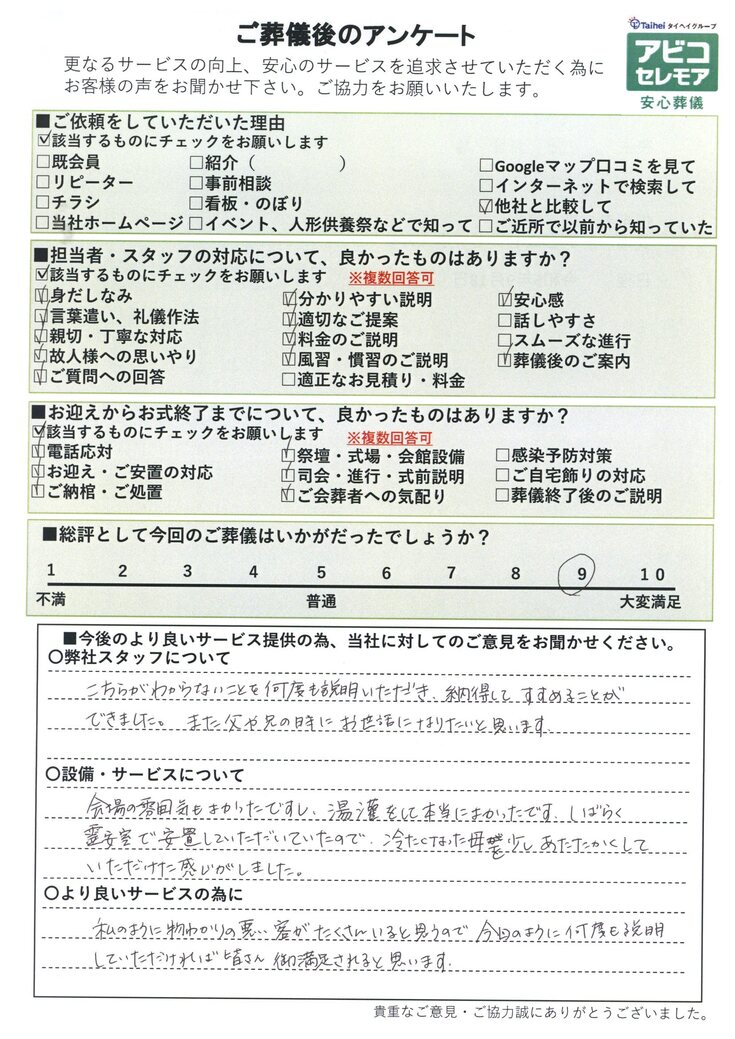 ご葬儀後のアンケート
Taihei タイヘイグループ
アビコ
セレモア
安心葬儀
更なるサービスの向上、安心のサービスを追求させていただく為に
お客様の声をお聞かせ下さい。ご協力をお願いいたします。
■ご依頼をしていただいた理由
☑該当するものにチェックをお願いします
□既会員 □紹介（ ） □Googleマップ口コミを見て
□リピーター □事前相談 □インターネットで検索して
□チラシ □看板・のぼり ☑他社と比較して
□当社ホームページ □イベント、人形供養祭などで知って □ご近所で以前から知っていた
■担当者・スタッフの対応について、良かったものはありますか？
☑該当するものにチェックをお願いします ※複数回答可
☑身だしなみ ☑分かりやすい説明 ☑安心感
☑言葉遣い、礼儀作法 ☑適切なご提案 □話しやすさ
☑親切・丁寧な対応 ☑料金のご説明 □スムーズな進行
☑故人様への思いやり ☑風習・慣習のご説明 ☑葬儀後のご案内
☑ご質問への回答 □適正なお見積り・料金
■お迎えからお式終了までについて、良かったものはありますか？
☑該当するものにチェックをお願いします ※複数回答可
☑電話応対 ☑祭壇・式場・会館設備 □感染予防対策
☑お迎え・ご安置の対応 ☑司会・進行・式前説明 □ご自宅飾りの対応
☑ご納棺・ご処置 ☑ご会葬者への気配り □葬儀終了後のご説明
■総評として今回のご葬儀はいかがだったでしょうか？
1 2 3 4 5 6 7 8 9 10
不満 普通 大変満足
■今後のより良いサービス提供の為、当社に対してのご意見をお聞かせください。
〇弊社スタッフについて
こちらがわからないことを何度も説明いただき、納得してすすめることが
できました。また父や兄の時にお世話になりたいと思います。
〇設備・サービスについて
会場の雰囲気もよかったですし、湯灌をして本当によかったです。しばらく
霊安室で安置していただいていたので、冷たくなった母を少しあたたかくして
いただけた感じがしました。
〇より良いサービスの為に
私のように物わかりの悪い客がたくさんいると思うので今回のように何度も説明
していただければ皆さん御満足されると思います。
貴重なご意見・ご協力誠にありがとうございました。